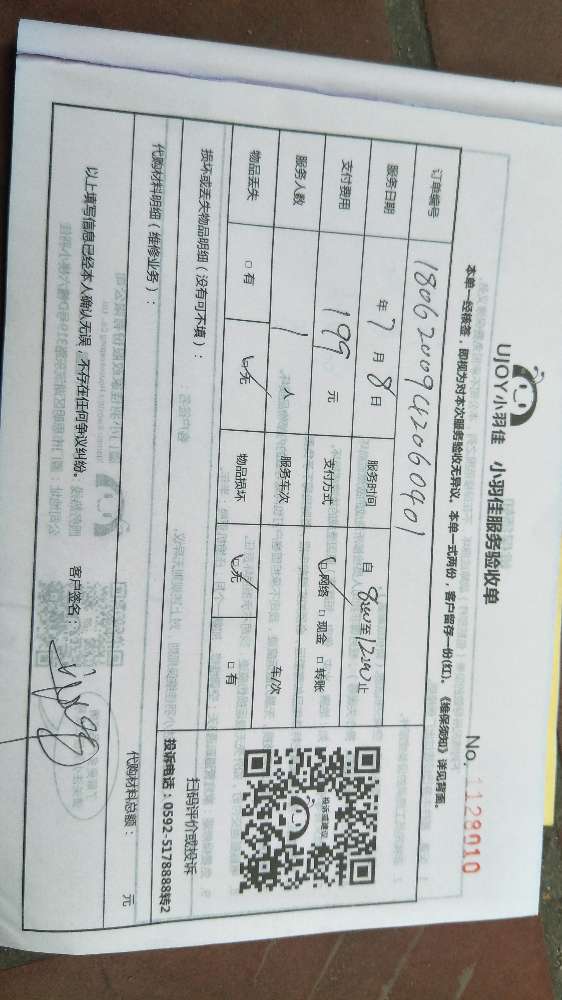 UJOY小羽佳 小羽佳服务验收单
No. 1128010
本单一经核签，即视为对本次服务验收无异议。本单一式两份，客户留存一份(红)。《维保须知》详见背面。
订单编号 1806200942060401
服务日期 年 7 月 8 日 服务时间 自 8:00 至 12:00 止
支付费用 199 元 支付方式 ☑网络 □现金 □转账
服务人数 1 人 服务车次 车/次
物品丢失 □有 ☑无 物品损坏 ☑无 □有
投诵或建议
扫码评价或投诉
投诉电话：0592-5178888转2
损坏或丢失物品明细（没有可不填）：
代购材料明细（维修业务）： 代购材料总额： 元
以上填写信息已经本人确认无误，不存在任何争议纠纷。 客户签名：